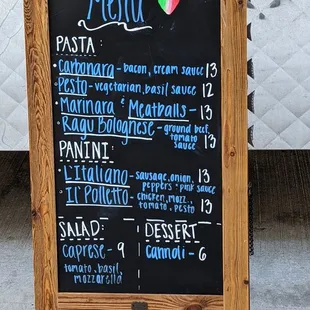 Menu
PASTA:
• Carbonara - bacon, cream sauce 13
• Pesto - vegetarian, basil sauce 12
• Marinara & Meatballs - 13
• Ragu Bolognese - ground beef, tomato sauce 13
PANINI:
• L'Italiano - sausage, onion, peppers, pink sauce 13
• Il' Polletto - chicken, mozz, tomato, pesto 13
SALAD:
caprese - 9
tomato, basil, mozzarella
DESSERT
cannoli - 6